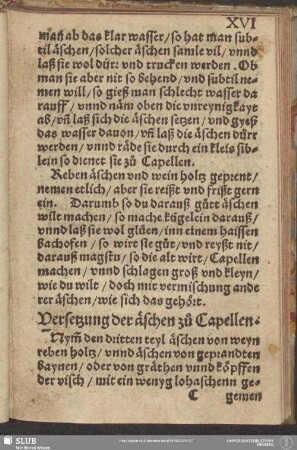 XVI
mañ ab das klar wasser/so hat man sub-
til äschen/solcher äschen samle vil/vnnd
laß sie wol dürr vnd trucken werden. Ob
man sie aber nit so behend/vnd subtil ne-
men will/so gieß man schlecht wasser da
rauff/vnnd näm oben die vnreynigkayt
ab/vñ laß sich die äschen setzen/vnd gyeß
das wasser dauon/vñ laß die äschen dürr
werden/vnnd räde sie durch ein kleis sib-
lein so dienet sie zů Capellen.
Reben äschen vnd wein holtz geprent/
nemen etlich/aber sie reißt vnd frißt gern
ein. Darumb so du darauß gůtt äschen
wilt machen/so mache kügelein darauß/
vnnd laß sie wol glüen/inn einem haissen
Bachofen/so wirt sie gůt/vnd reyßt nit/
darauß magstu/so die alt wirt/Capellen
machen/vnnd schlagen groß vnd kleyn/
wie du wilt/doch mit vermischung ande
rer äschen/wie sich das gehört.
Versetzung der äschen zů Capellen.
Nym̃ den dritten teyl äschen von weyn
reben holtz/vnnd äschen von geprandten
baynen/oder von gräthen vnnd köpffen
der visch/mit ein wenyg lohaschenn ge-
C gemen
SLUB
Wir führen Wissen.